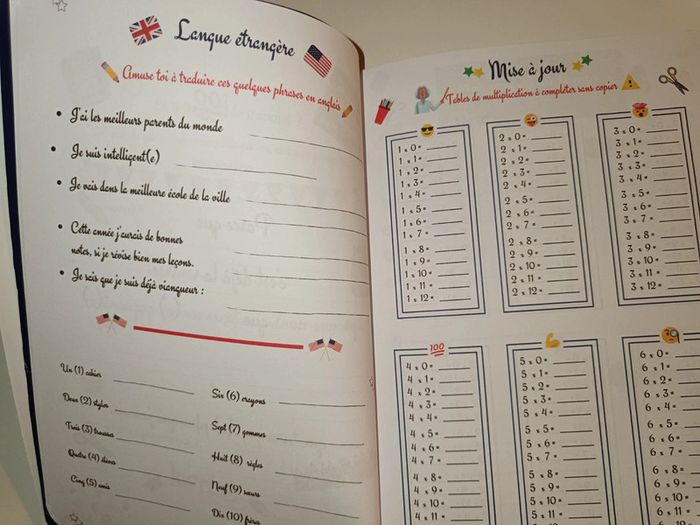 Langue étrangère
Amuse toi à traduire ces quelques phrases en anglais
• J'ai les meilleurs parents du monde
• Je suis intelligent(e)
• Je vais dans la meilleure école de la ville
• Cette année j'aurais de bonnes
notes, si je révise bien mes leçons.
• Je sais que je suis déjà vianqueur :
Un (1) cahier
Deux (2) stylos
Trois (3) trousses
Quatre (4) élèves
Cinq (5) amis
Six (6) crayons
Sept (7) gommes
Huit (8) règles
Neuf (9) sœurs
Dix (10) frères
Mise à jour
Tables de multiplication à compléter sans copier
1 x 0=
1 x 1=
1 x 2=
1 x 3=
1 x 4=
1 x 5=
1 x 6=
1 x 7=
1 x 8=
1 x 9=
1 x 10=
1 x 11=
1 x 12=
2 x 0=
2 x 1=
2 x 2=
2 x 3=
2 x 4=
2 x 5=
2 x 6=
2 x 7=
2 x 8=
2 x 9=
2 x 10=
2 x 11=
2 x 12=
3 x 0=
3 x 1=
3 x 2=
3 x 3=
3 x 4=
3 x 5=
3 x 6=
3 x 7=
3 x 8=
3 x 9=
3 x 10=
3 x 11=
3 x 12=
100
4 x 0=
4 x 1=
4 x 2=
4 x 3=
4 x 4=
4 x 5=
4 x 6=
4 x 7=
4 x 8=
4 x 9=
4 x 10=
4 x 11=
5 x 0=
5 x 1=
5 x 2=
5 x 3=
5 x 4=
5 x 5=
5 x 6=
5 x 7=
5 x 8=
5 x 9=
5 x 10=
5 x 11=
6 x 0=
6 x 1=
6 x 2=
6 x 3=
6 x 4=
6 x 5=
6 x 6=
6 x 7=
6 x 8=
6 x 9=
6 x 10=
6 x 11=